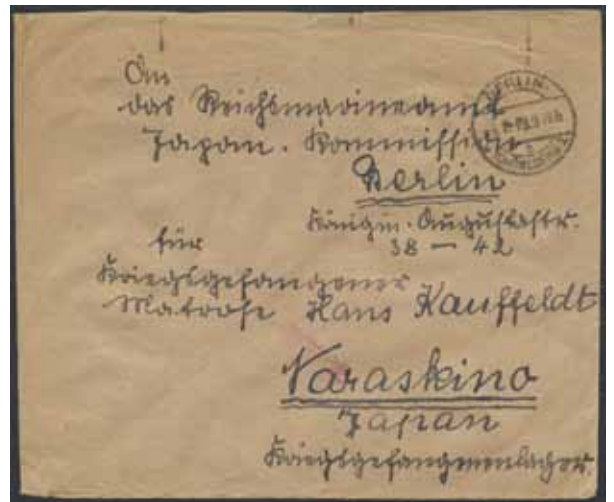 An
das Reichsmarineamt
Japan-Kommission
Berlin
Königin-Augustastr.
38 — 42
für
Kriegsgefangener
Matrose Hans Kauffeldt
Naraskino
Japan
Kriegsgefangenenlager.
BERLIN